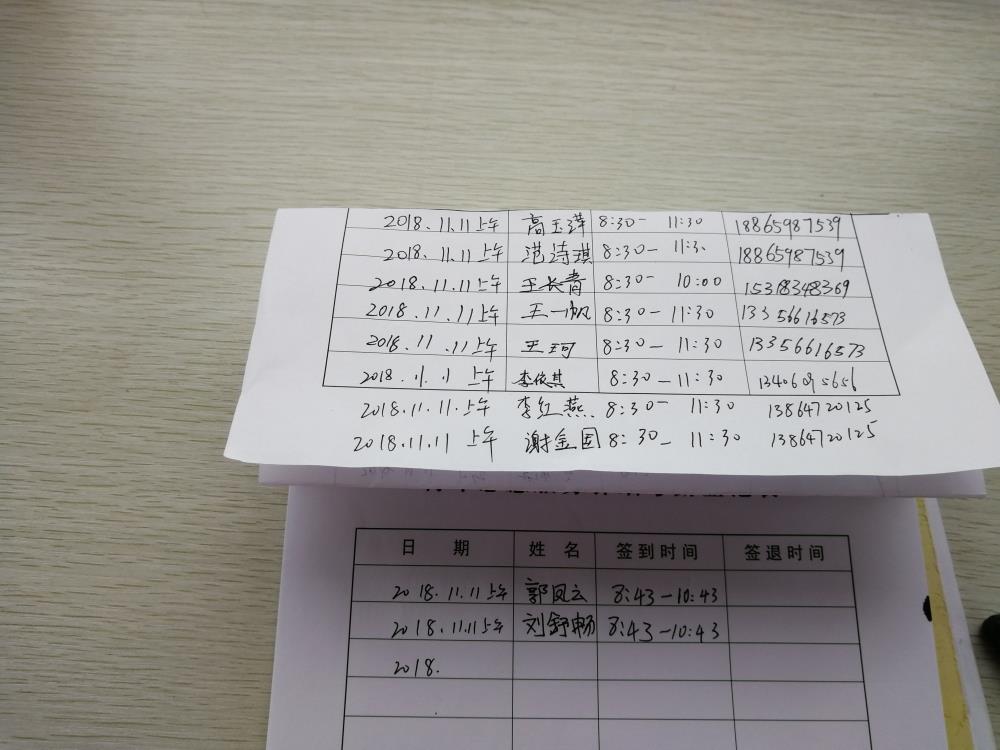 2018.11.11上午 高玉萍 8:30- 11:30 18865987539
2018.11.11上午 范诗琪 8:30- 11:30 18865987539
2018.11.11上午 王长青 8:30- 10:00 15318348369
2018.11.11上午 王一帆 8:30- 11:30 13356616573
2018.11.11上午 王珂 8:30- 11:30 13356616573
2018.11.11上午 李依其 8:30-11:30
2018.11.11.上午 李红燕 8:30- 11:30 13864720125
2018.11.11 上午 谢金国 8:30- 11:30 13864720125
日 期 姓 名 签到时间 签退时间
2018.11.11上午 郭凤云 8:43-10:43
2018.11.11上午 刘舒畅 8:43-10:43
2018.